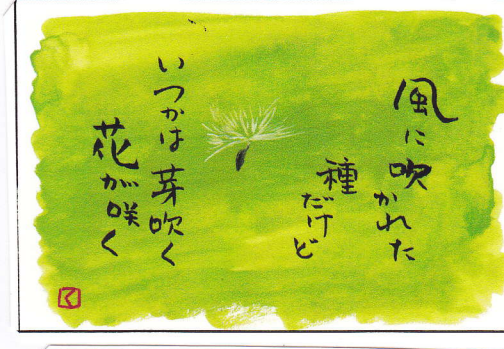 風に吹かれた
種だけど
いつかは芽吹く
花が咲く
く